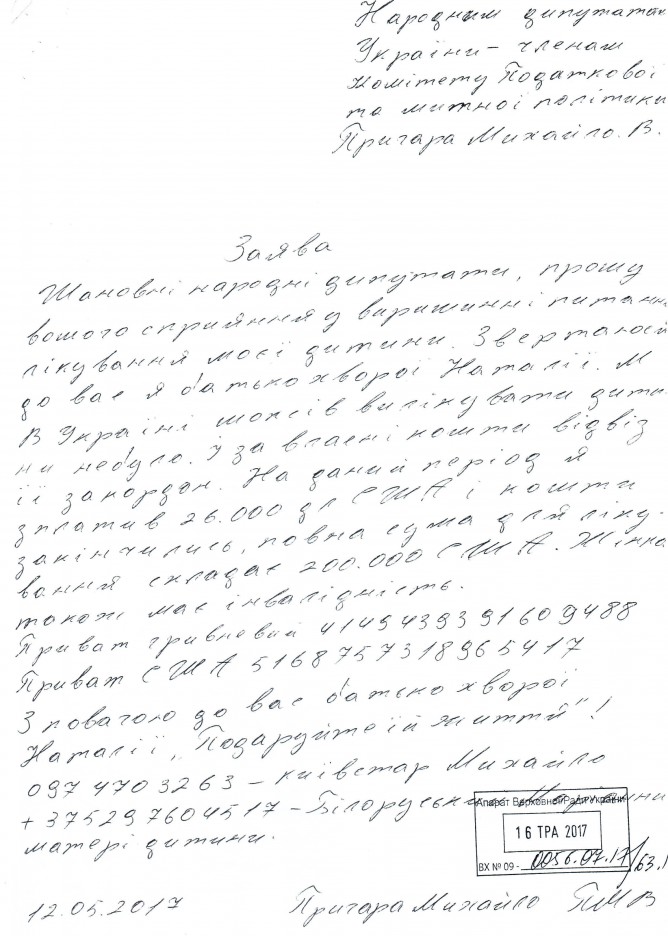 Народним дипутатам
України – членам
Комітету Податкової
та митної політики
Пригара Михайло. В.
Заява
Шановні народні дипутати, прошу
вошого сприяння у виришинні питанн
лікування моєї дитини. Звертаюся
до вас я батько хворої Наталії. М
В Україні можсів вилікувати дити
ни небуло. І за власні кошти відвіз
її закордон. На даний період я
зплатив 26.000 дл США і кошти
закінчились, повна сума для ліку-
вання складає 200.000 США. Жінка
також має інвалідність.
Приват гривневий 4149439391609488
Приват США 5168757318965417
З повагою до вас батько хворої
Наталії „Подаруйте їй життя"!
097 4703263 – київстар Михайло
+ 375297604517 – Білоруський
матері дитини.
Апарат Верховної Ради України
16 ТРА 2017
ВХ № 09 - 0056.07.17/63.1
12.05.2017 Пригара Михайло ПМВ